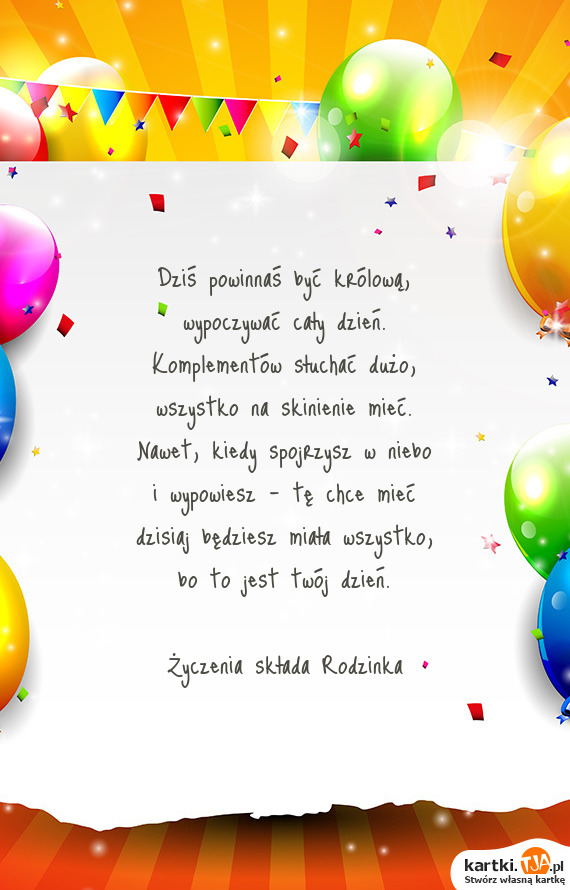 Dziś powinnaś być królową,
wypoczywać cały dzień.
Komplementów słuchać dużo,
wszystko na skinienie mieć.
Nawet, kiedy spojrzysz w niebo
i wypowiesz - tę chce mieć
dzisiaj będziesz miała wszystko,
bo to jest twój dzień.
Życzenia składa Rodzinka
kartki.TJA.pl
Stwórz własną kartkę